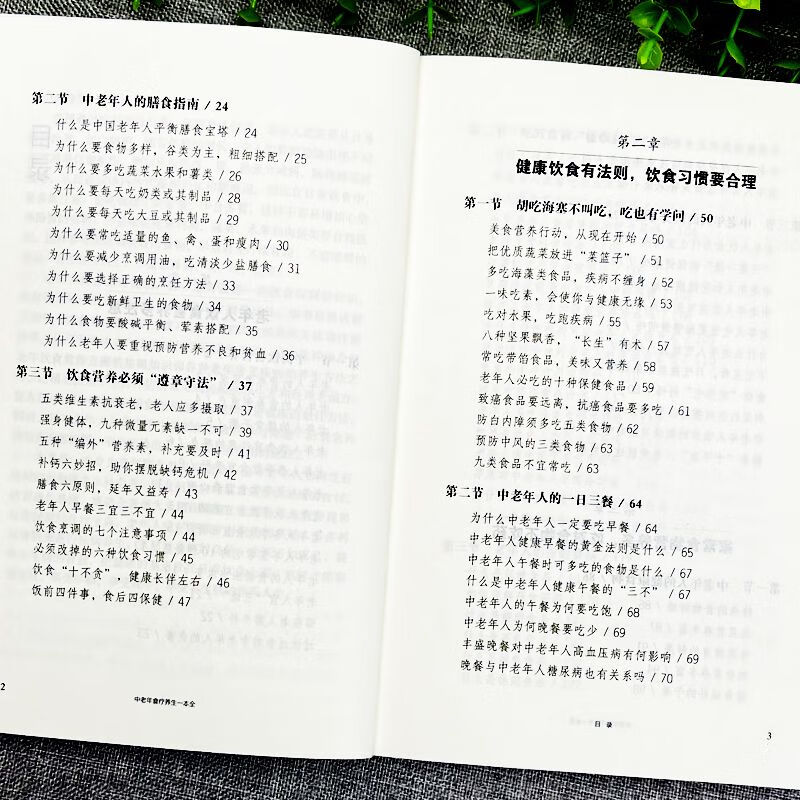 第二节 中老年人的膳食指南 / 24
什么是中国老年人平衡膳食宝塔 / 24
为什么要食物多样，谷类为主，粗细搭配 / 25
为什么要多吃蔬菜水果和薯类 / 26
为什么要每天吃奶类或其制品 / 28
为什么要每天吃大豆或其制品 / 29
为什么要常吃适量的鱼、禽、蛋和瘦肉 / 30
为什么要减少烹调用油，吃清淡少盐膳食 / 31
为什么要选择正确的烹饪方法 / 33
为什么要吃新鲜卫生的食物 / 34
为什么食物要酸碱平衡、荤素搭配 / 35
为什么老年人要重视预防营养不良和贫血 / 36
第三节 饮食营养必须“遵章守法” / 37
五类维生素抗衰老，老人应多摄取 / 37
强身健体，九种微量元素缺一不可 / 39
五种“编外”营养素，补充要及时 / 41
补钙六妙招，助你摆脱缺钙危机 / 42
膳食六原则，延年又益寿 / 43
老年人早餐三宜三不宜 / 44
饮食烹调的七个注意事项 / 44
必须改掉的六种饮食习惯 / 45
饮食“十不贪”，健康长伴左右 / 46
饭前四件事，食后四保健 / 47
2
中老年食疗养生一本全
第二章
健康饮食有法则，饮食习惯要合理
第一节 胡吃海塞不叫吃，吃也有学问 / 50
美食营养行动，从现在开始 / 50
把优质蔬菜放进“菜篮子” / 51
多吃海藻类食品，疾病不缠身 / 52
一味吃素，会使你与健康无缘 / 53
吃对水果，吃跑疾病 / 55
八种坚果飘香，“长生”有术 / 57
常吃带馅食品，美味又营养 / 58
老年人必吃的十种保健食品 / 59
致癌食品要远离，抗癌食品要多吃 / 61
防白内障须多吃五类食物 / 62
预防中风的三类食物 / 63
九类食品不宜常吃 / 63
第二节 中老年人的一日三餐 / 64
为什么中老年人一定要吃早餐 / 64
中老年人健康早餐的黄金法则是什么 / 65
中老年人早餐时可多吃的食物是什么 / 67
什么是中老年人健康午餐的“三不” / 67
中老年人的午餐为何要吃饱 / 68
中老年人为何晚餐要吃少 / 69
丰盛晚餐对中老年人高血压病有何影响 / 69
晚餐与中老年人糖尿病也有关系吗 / 70
目 录
3